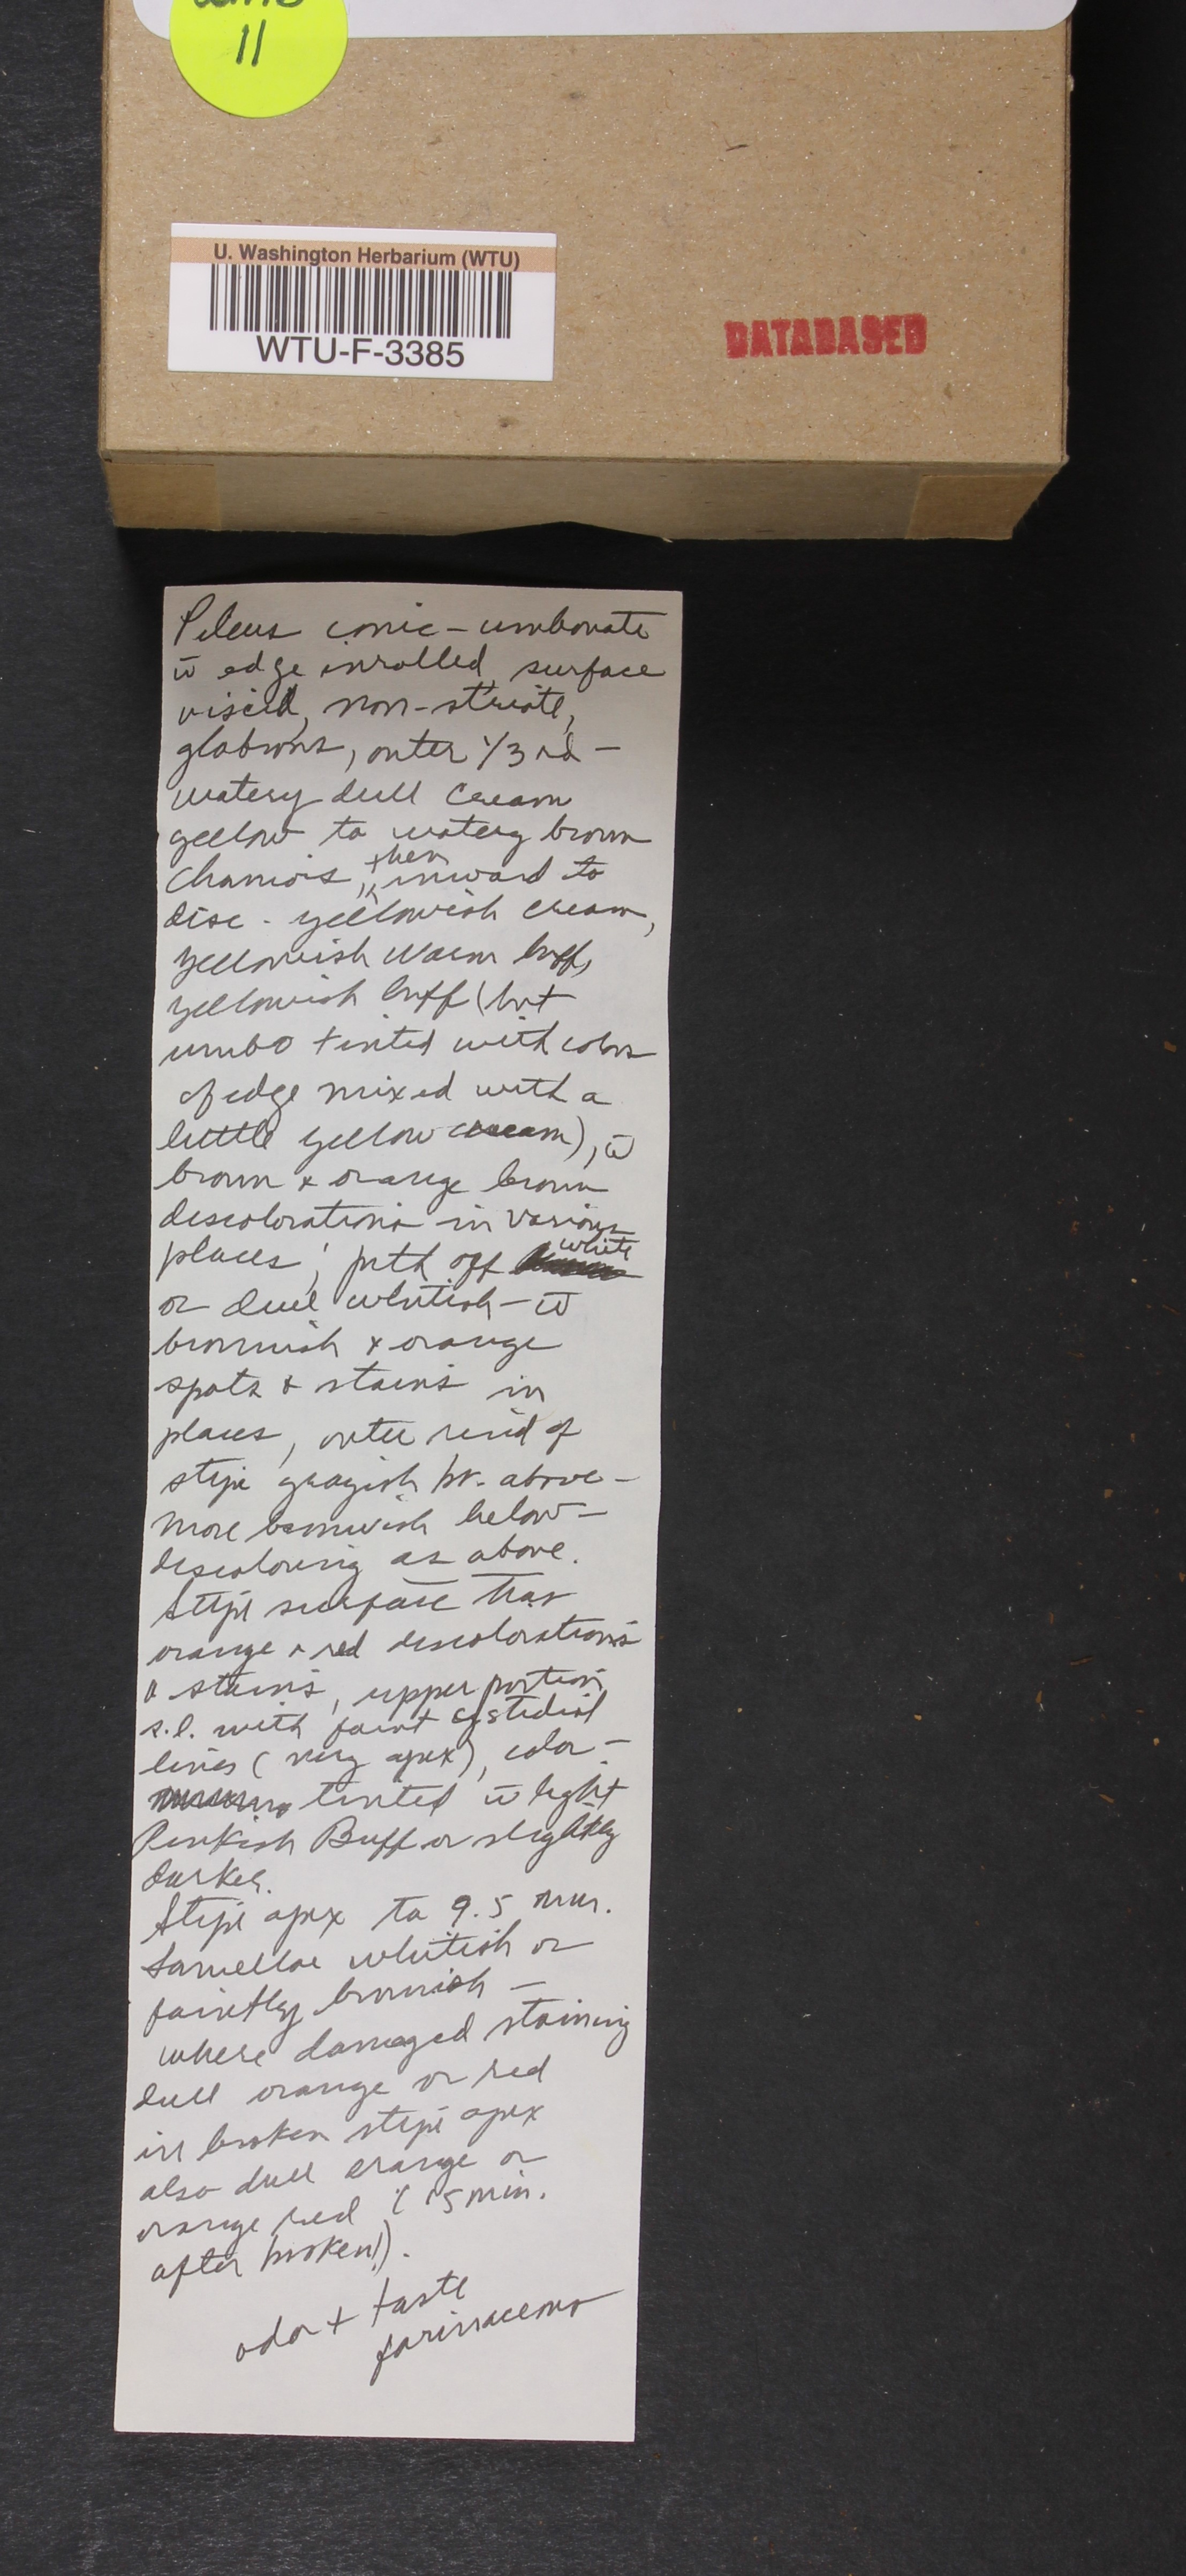 11
U. Washington Herbarium (WTU)
WTU-F-3385
DATABASED
Pileus conic-umbonate
w̄ edge inrolled, surface
viscid, non-striate,
glabrous, outer 1/3rd —
watery dull cream
yellow to watery brown
Chamois, then inward to
disc - yellowish cream,
yellowish warm buff,
yellowish buff (but
umbo tinted with colors
of edge mixed with a
little yellow cream), w̄
brown & orange brown
discolorations in various
places; pith off white
or dull whitish - w̄
brownish & orange
spots & stains in
places, outer rind of
stipe grayish br. above —
more brownish below —
discoloring as above.
Stipe surface has
orange & red discolorations
& stains, upper portion
s.l. with faint cystidial
lines (very apex), color —
tinted w̄ light
Pinkish Buff or slightly
darker.
Stipe apex to 9.5 mm.
Lamellae whitish or
faintly brownish —
where damaged staining
dull orange or red
in broken stipe apex
also dull orange or
orange red (15 min.
after broken)).
odor + taste
farinaceous